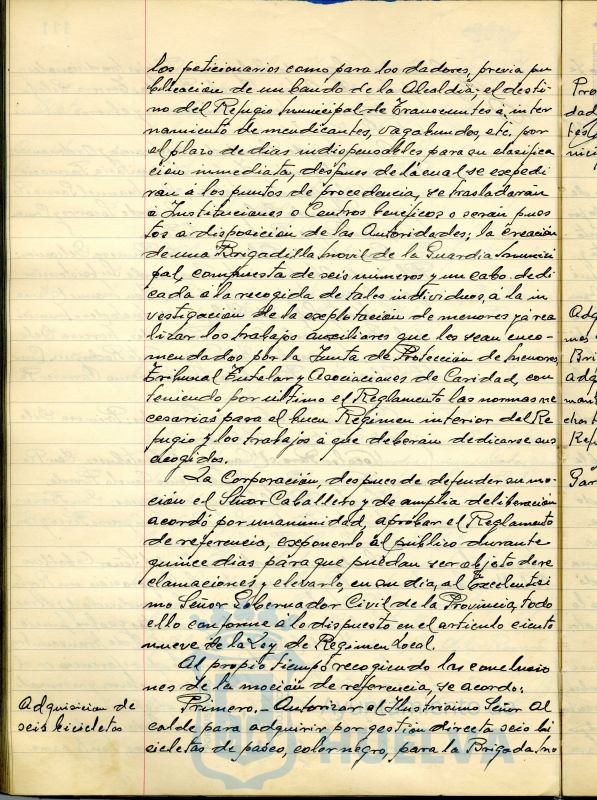 los peticionarios como para los dadores, previa pu
blicación de un bando de la Alcaldia; el desti-
no del Refugio Municipal de Transeuntes á inter
namiento de mendicantes, vagabundos, etc. por
el plazo de dias indispensables para su clasifica
ción inmediata, despues de la cual se expedi
rán á los puntos de procedencia, se trasladarán
á Instituciones o Centros beneficos o serán pues
tos á disposición de las Autoridades; la creación
de una Brigadilla movil de la Guardia Munici
pal, compuesta de seis números y un cabo dedi
cada á la recogida de tales individuos, á la in
vestigación de la explotación de menores y á rea
lizar los trabajos auxiliares que les sean enco-
mendados por la Junta de Protección de menores,
Tribunal Tutelar y Asociaciones de Caridad, con
teniendo por ultimo el Reglamento las normas ne
cesarias para el buen Régimen interior del Re
fugio y los trabajos á que deberán dedicarse sus
acogidos.
La Corporación, despues de defender su mo-
ción el Señor Caballero y de amplia deliberación
acordó por unanimidad, aprobar el Reglamento
de referencia, exponerlo al público durante
quince dias para que puedan ser objeto de re
clamaciones y elevarlo, en su dia, al Excelentisi
mo Señor Gobernador Civil de la Provincia, todo
ello conforme á lo dispuesto en el articulo ciento
nueve de la Ley de Regimen Local.
Al propio tiempo recogiendo las conclusio
nes de la moción de referencia, se acordo:
Adquisicion de
seis bicicletas
Primero.- Autorizar al Ilustrisimo Señor Al
calde para adquirir por gestión directa seis bi
cicletas de paseo, color negro, para la Brigada mo
HUELVA